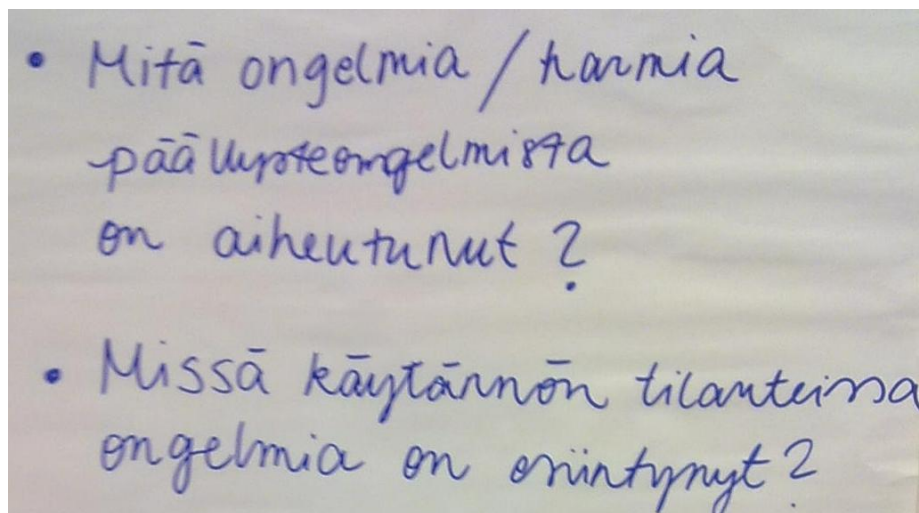 • Mitä ongelmia / harmia
päällysteongelmista
on aiheutunut?
• Missä käytännön tilanteissa
ongelmia on esiintynyt?